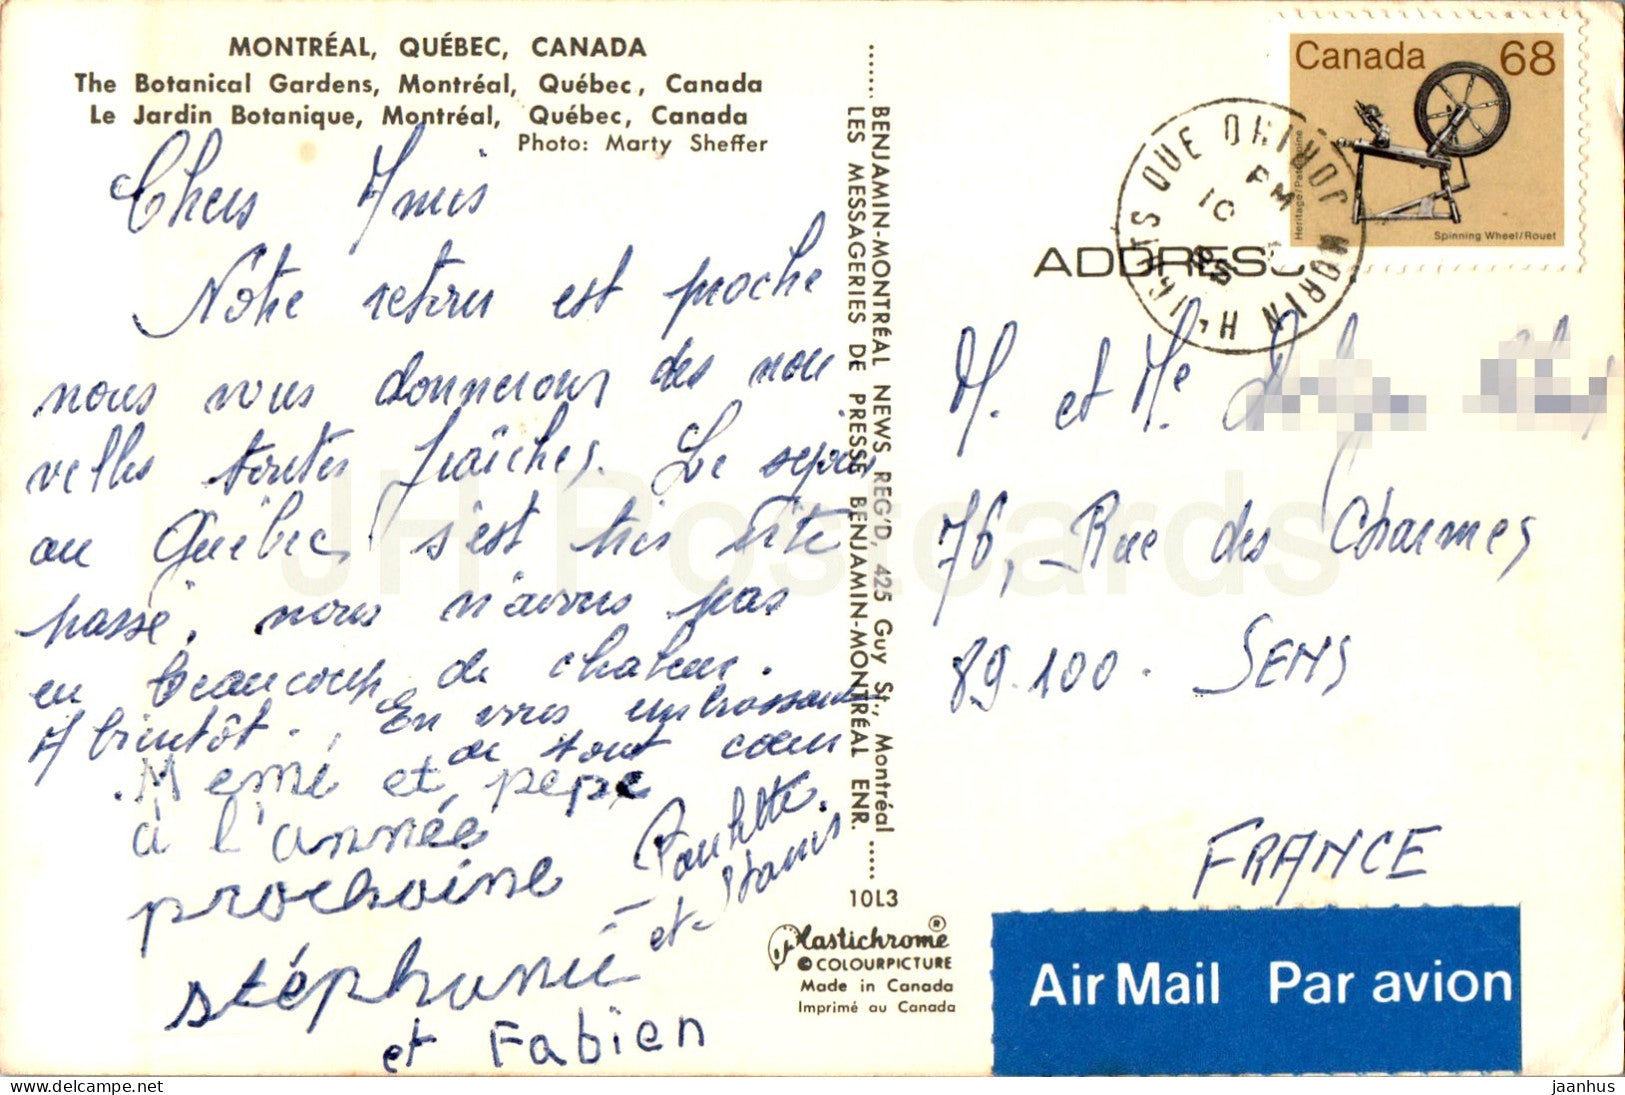 MONTRÉAL, QUÉBEC, CANADA
The Botanical Gardens, Montréal, Québec, Canada
Le Jardin Botanique, Montréal, Québec, Canada
Photo: Marty Sheffer
Chers Amis
Notre retour est proche
nous vous donnerons des nou
velles toutes fraîches. Le séjour
au Québec s'est très vite
passé, nous n'avons pas
eu beaucoup de chaleur.
A bientôt. En vous embrassant
de tout cœur
Memé et pepe
à l'année
prochaine
Paulette.
et Stanis
stéphanie
et Fabien
BENJAMIN-MONTRÉAL NEWS REG'D, 425 Guy St., Montréal
LES MESSAGERIES DE PRESSE BENJAMIN-MONTRÉAL ENR.
10L3
Plastichrome ®
© COLOURPICTURE
Made in Canada
Imprimé au Canada
Canada 68
Heritage/Patrimoine
Spinning Wheel/Rouet
PM
10
85
MORIN H
ADDRESS
M. et Me
76, Rue des Charmes
89.100. SENS
FRANCE
Air Mail Par avion
JH Postcards
jaanhus